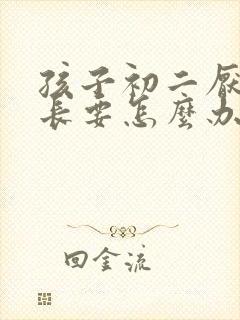 孩子初二厌
长要怎麼办
回金流